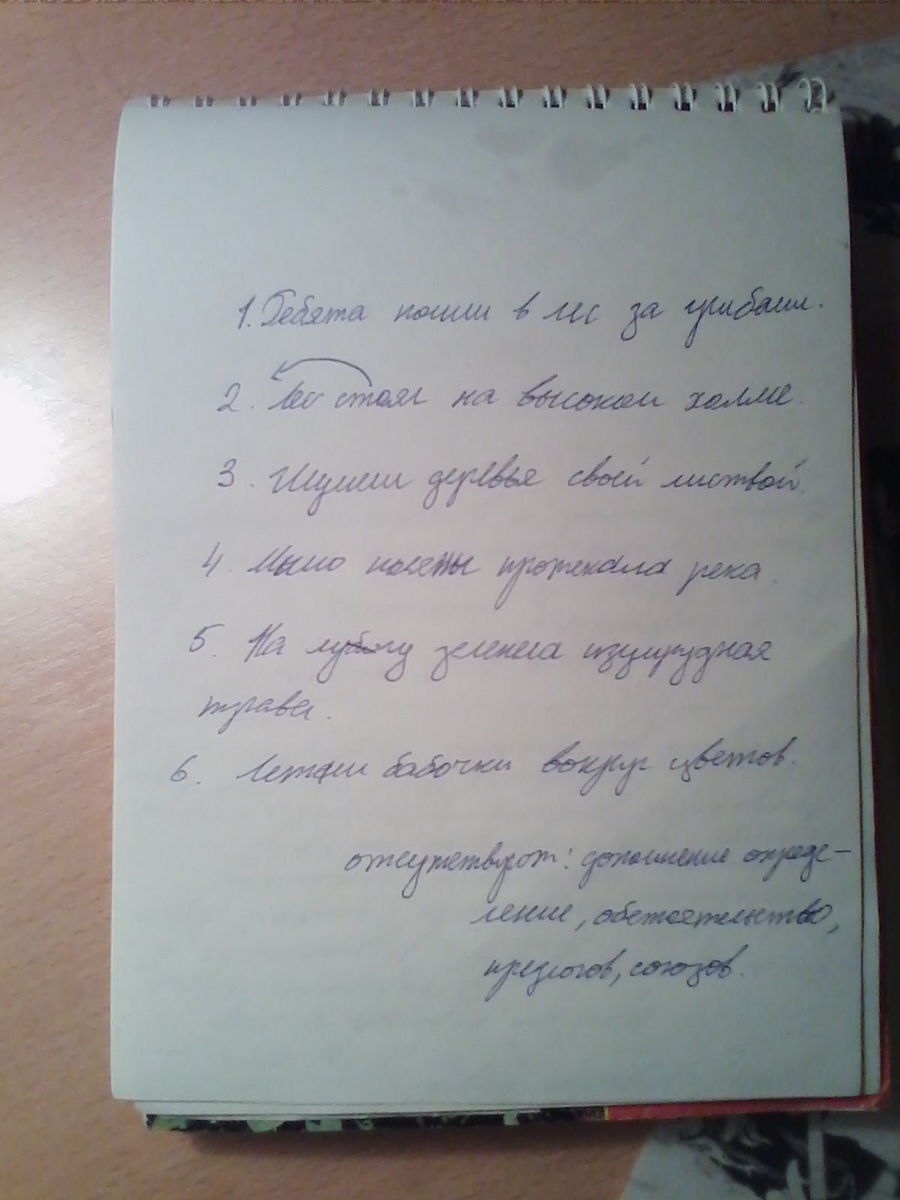 1. Ребята пошли в лес за грибами.
2. Лес стоял на высоком холме.
3. Шумели деревья своей листвой.
4. Мимо поляны протекала река.
5. На лугу зеленела изумрудная
трава.
6. Летали бабочки вокруг цветов.
отсутствуют: дополнение опреде-
ление, обстоятельство,
предлогов, союзов.